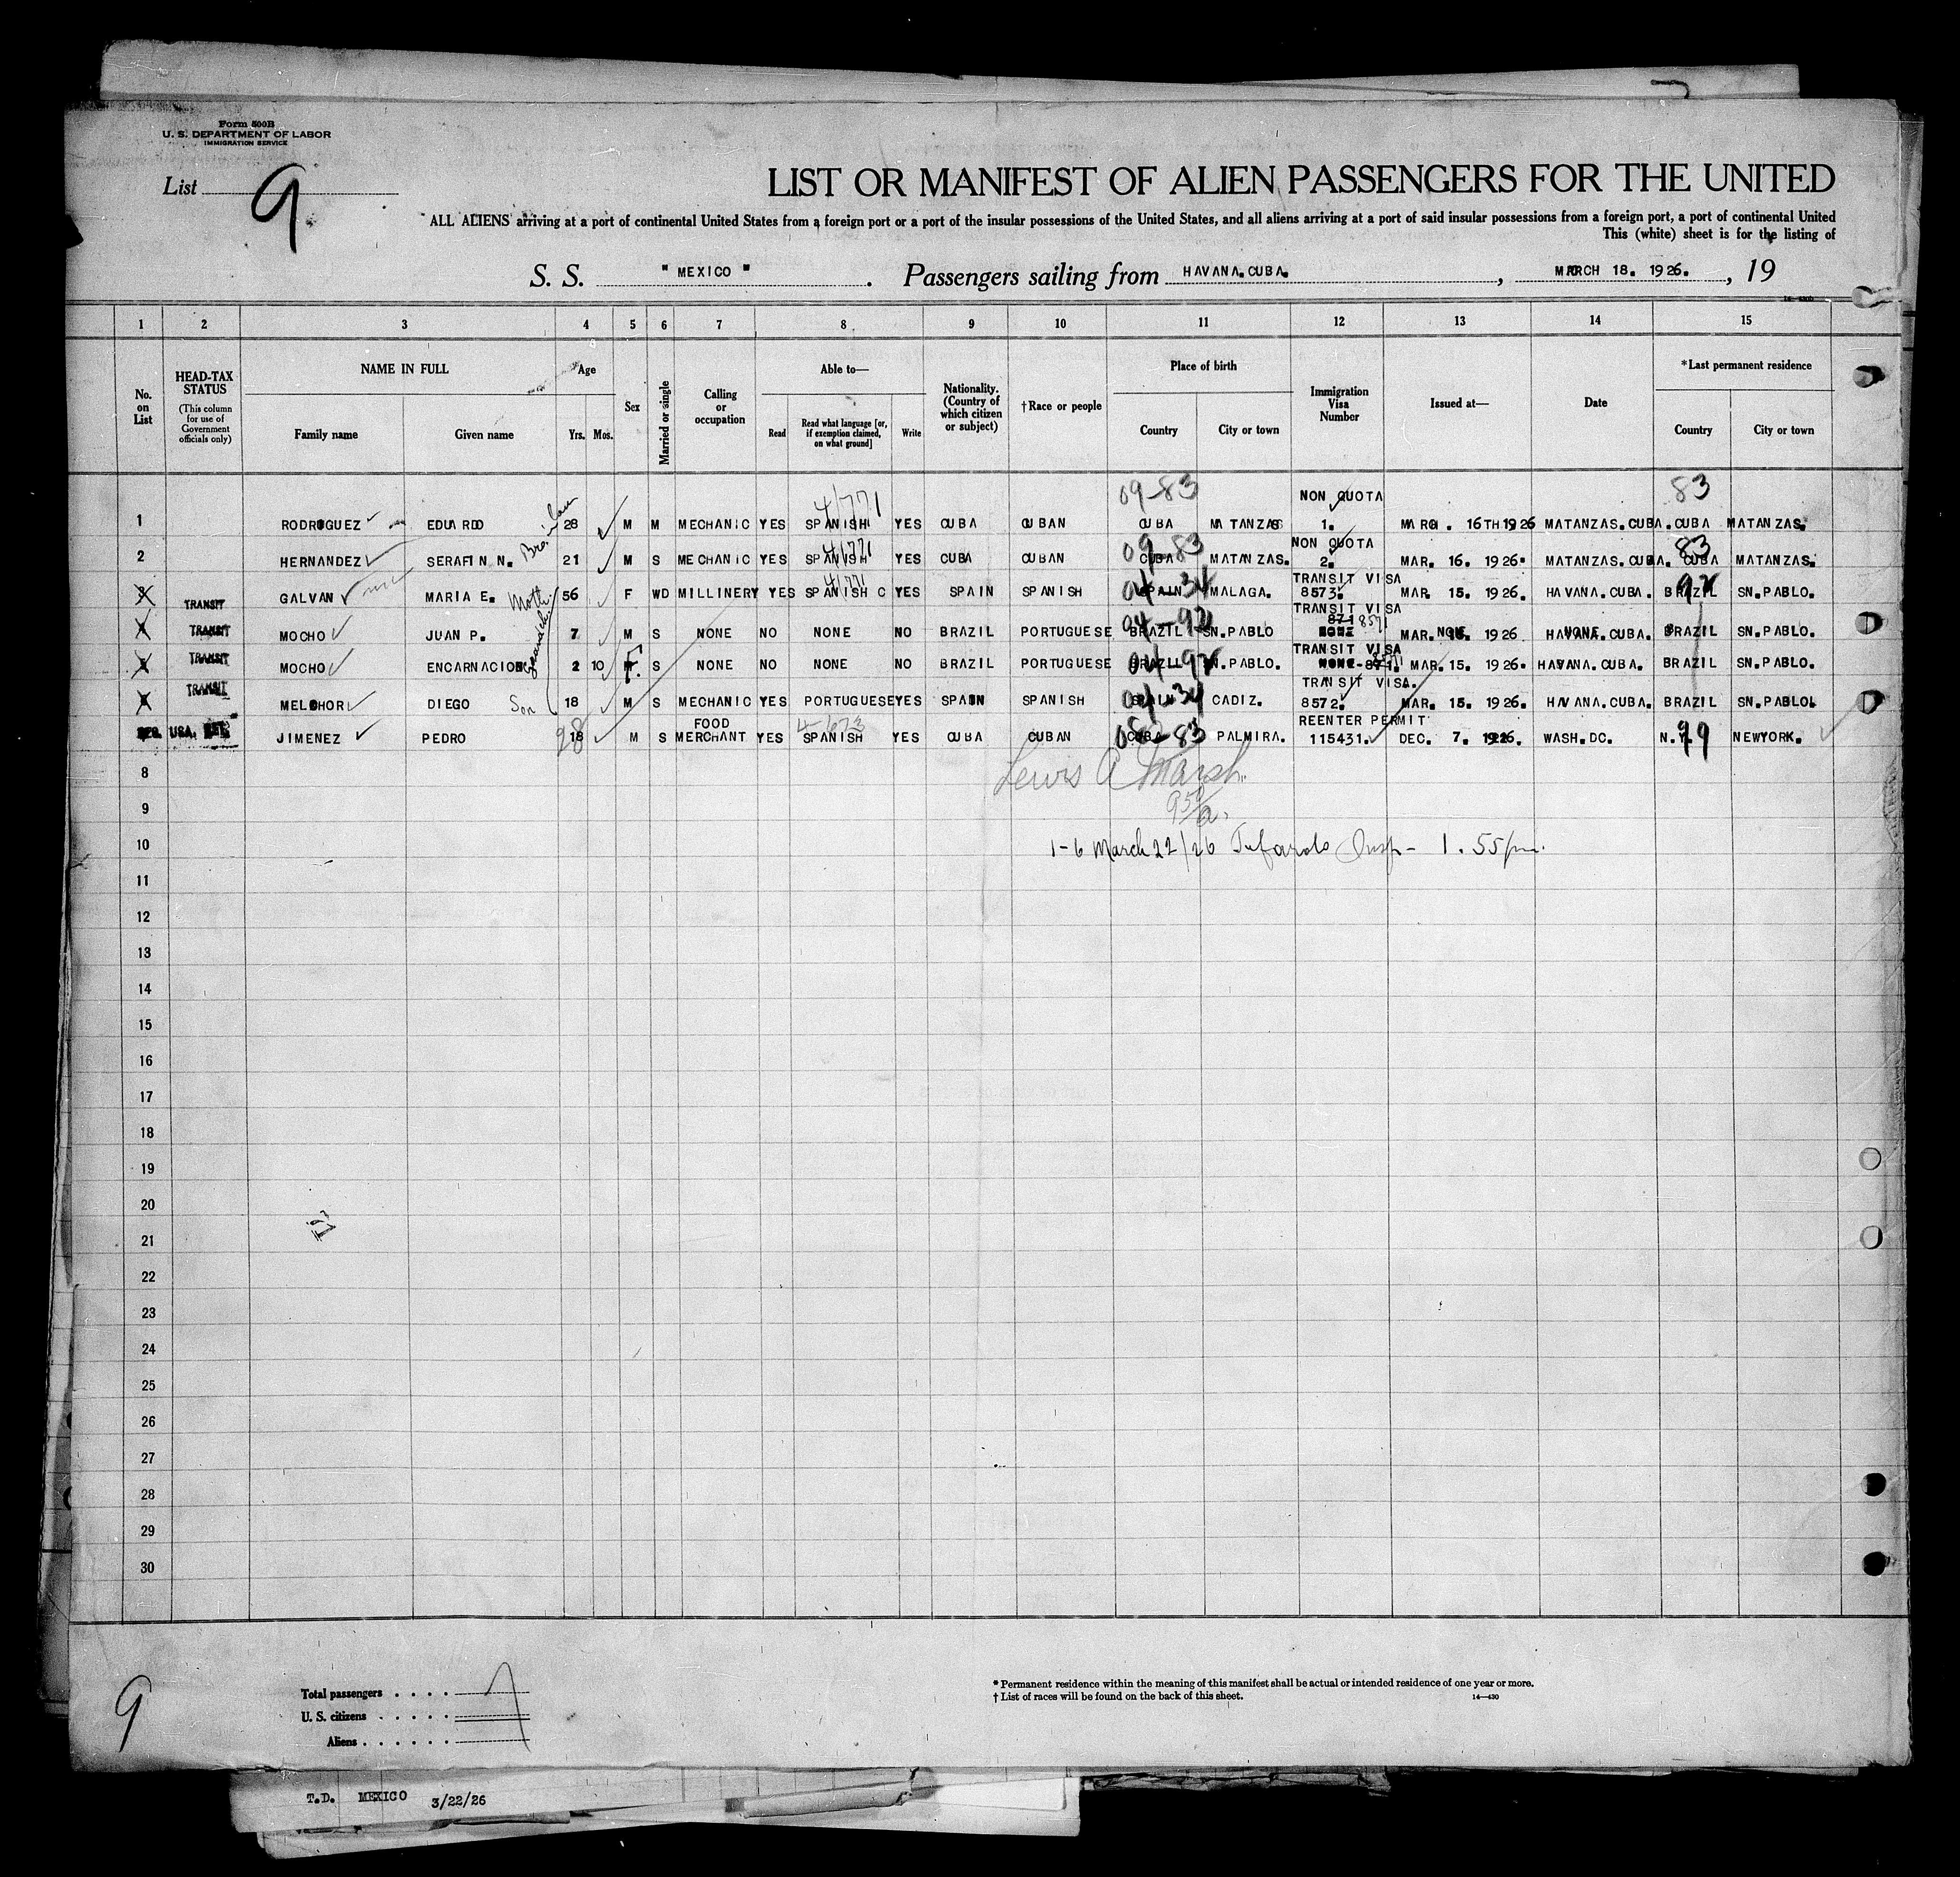 Form 500B
U. S. DEPARTMENT OF LABOR
IMMIGRATION SERVICE
List 9
LIST OR MANIFEST OF ALIEN PASSENGERS FOR THE UNITED
ALL ALIENS arriving at a port of continental United States from a foreign port or a port of the insular possessions of the United States, and all aliens arriving at a port of said insular possessions from a foreign port, a port of continental United
This (white) sheet is for the listing of
S. S. "MEXICO". Passengers sailing from HAVANA.CUBA., MARCH 18. 1926., 19
1 2 3 4 5 6 7 8 9 10 11 12 13 14 15
No. on List
HEAD-TAX STATUS
(This column for use of Government officials only)
NAME IN FULL
Family name
Given name
Age
Yrs. Mos.
Sex
Married or single
Calling or occupation
Able to—
Read
Read what language [or, if exemption claimed, on what ground]
Write
Nationality. (Country of which citizen or subject)
†Race or people
Place of birth
Country
City or town
Immigration Visa Number
Issued at—
Date
*Last permanent residence
Country
City or town
4/771 09-83 NON QUOTA 83
1 RODRIGUEZ EDUARDO Bro in law 28 M M MECHANIC YES SPANISH YES CUBA CUBAN CUBA MATANZAS 1. MARCH. 16TH 1926 MATANZAS.CUBA. CUBA MATANZAS.
4/771 09-83 NON QUOTA 83
2 HERNANDEZ SERAFIN N. 21 M S MECHANIC YES SPANISH YES CUBA CUBAN CUBA MATANZAS. 2. MAR. 16. 1926. MATANZAS.CUBA. CUBA MATANZAS.
4/771 04-34 TRANSIT VISA 92
3 TRANSIT GALVAN MARIA E. Moth. 56 F WD MILLINERY YES SPANISH C YES SPAIN SPANISH SPAIN MALAGA. 8573. MAR. 15. 1926. HAVANA.CUBA. BRAZIL SN.PABLO.
04-92 TRANSIT VISA
871 8571
4 TRANSIT MOCHO JUAN P. 7 M S NONE NO NONE NO BRAZIL PORTUGUESE BRAZIL SN.PABLO NONE MAR. 15. 1926 HAVANA.CUBA. BRAZIL SN.PABLO.
04-92 TRANSIT VISA
5 TRANSIT MOCHO ENCARNACION 2 10 F. S NONE NO NONE NO BRAZIL PORTUGUESE BRAZIL SN.PABLO. NONE-871. MAR.15. 1926. HAVANA.CUBA. BRAZIL SN.PABLO.
04-34 TRANSIT VISA.
6 TRANSIT MELCHOR DIEGO Son 18 M S MECHANIC YES PORTUGUESE YES SPAIN SPANISH SPAIN CADIZ. 8572. MAR. 15. 1926. HAVANA.CUBA. BRAZIL SN.PABLO.
FOOD 4-673 REENTER PERMIT
USA. JIMENEZ PEDRO 28 18 M S MERCHANT YES SPANISH YES CUBA CUBAN CUBA 83 PALMIRA. 115431. DEC. 7. WASH.DC. N.Y. 99 NEWYORK.
8 Lewis A Marsh
9
10 1-6 March 22/26 Insp- 1.55pm.
11
12
13
14
15
16
17
18
19
20
21
22
23
24
25
26
27
28
29
30
9
Total passengers . . . . 7
U. S. citizens . . . . .
Aliens . . . . . .
* Permanent residence within the meaning of this manifest shall be actual or intended residence of one year or more.
† List of races will be found on the back of this sheet.
14—430
T.D. MEXICO 3/22/26